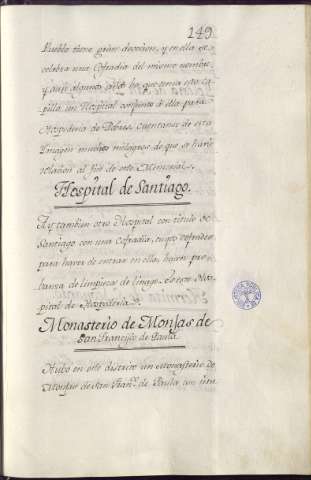 149
Pueblo tiene gran devocion, y en ella se
celebra una Cofradia del mismo nombre,
y aun algunos años ha que tenia esta ca-
pilla un Hospital conjunto á ella para
Hospederia de Pobres, cuentanse de esta
Imagen muchos milagros de que se hará
relacion al fin de este Memorial.
Hospital de Santiago.
Ay tambien otro Hospital con titulo de
Santiago con una Cofradia, cuyos cofrades
para haver de entrar en ella, hacen pro-
banza de limpieza de linage. Es este Hos-
pital de Hospederia.
Monasterio de Monjas de
San Francisco de Paula
Hubo en este distrito un Monasterio de
Monjas de San Fran.co de Paula con una